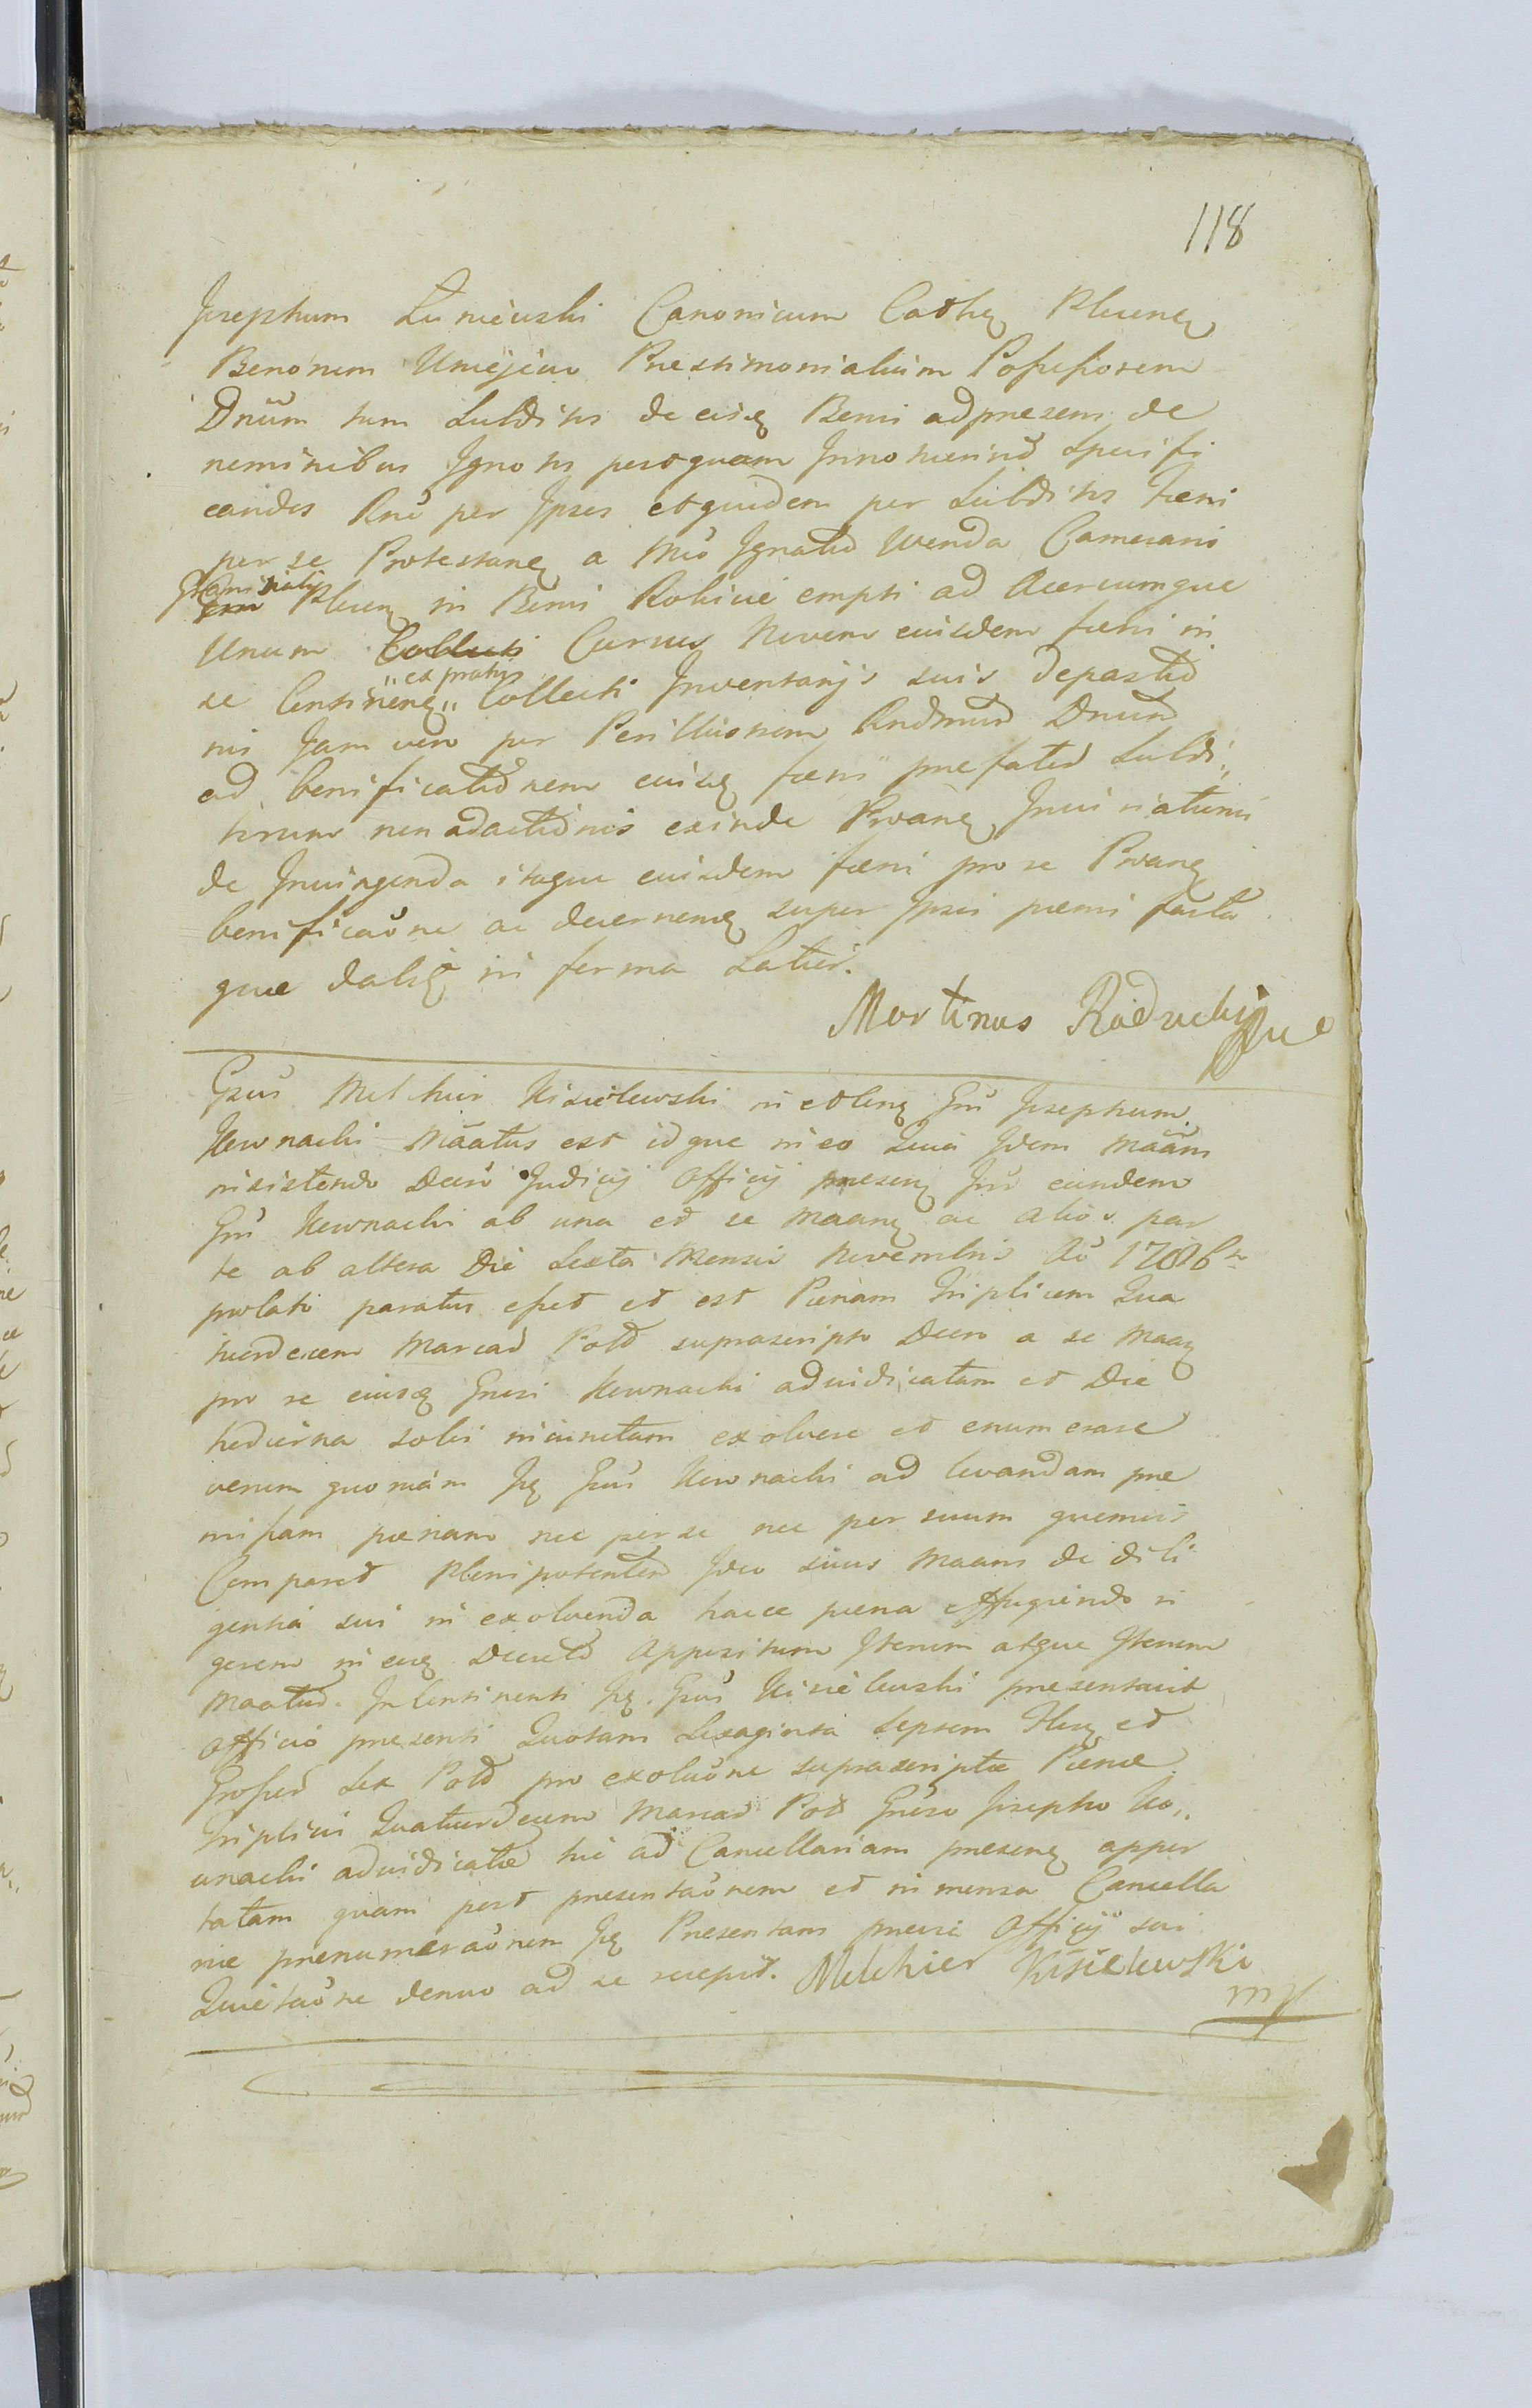 118
Josephum Łuniewski Canonicum Cathę Plucenę
Bonorum Uniejewo Prestimonialium Possessorem
Dnūm tum Subditos de eisę Bonis ad presens de
nominibus Ignotos postquam Innotuerint Specifi
candos Rnē per Ipsos et quidem per Subditos Fæni
per se Protestanę a Mco Ignatio Wenda Camerario
Granitiali Plucę in Bonis Rokicie empti ad Acervumque
Unum Currus Novem eiusdem fæni in
se Continenę "ex pratis" Collecti Inventarijs suis depastio
nis Jam vero per Perillustrem Rndmum Dnum
ad bonificationem eiusę fæni prefatos Subdi„
torum non adactionis exinde Prōanę Injuriatum
de Injungenda itaque eiusdem fæni pro se Proanę
bonificaōne ac decernenę super Ipsis pænis facto
que dabię in forma Latiori.
Martinus Radzicki
Gsus Melchior Kisielewski in et olenę Grū Josephum
Kownacki Māatus est idque in eo Quia Idem Maām
insistendo Decrō Judicij Officij presenę Inr eundem
Grū Kownacki ab una et se Maanę ac alios par
te ab altera Die Sexta Mensis Novembris Aō 1786to
prolato paratus esset et est Pænam Triplicem Qua
tuordecem Marcar Polō suprascripto Decro a se Maaę
pro se eiusę Grsi Kownacki adiudicatam et Die
hodierna solvi iniunctam exolvere et enumerare
verum quoniam Ję Gsus Kownacki ad levandam pre
missam pænam nec per se nec per suum quemvis
Comparet Plenipotentem Ideo suus Maans de dili
gentia sui in exolvenda hacce pæna effugiendo ri
gorem in eoę Decreto Appositum Iterum atque Iterum
Maatur. In Continenti Ję. Gsus Kisielewski presentavit
Officio presenti Quotam Sexaginta Septem Florę et
Grossos Sex Polō pro exoluōne suprascriptæ Pænæ
Triplicis Quatuordecem Marcar Polō Grēso Josepho Ko„
wnacki adiudicatæ hic ad Cancellariam presenę appor
tatam quam post presentaōnem et in mensa Cancella
riæ prenumeraōnem Ję Presentans previa Officij sui
Quietaōne denuo ad se recepit. Melchior Kisielewski
mp